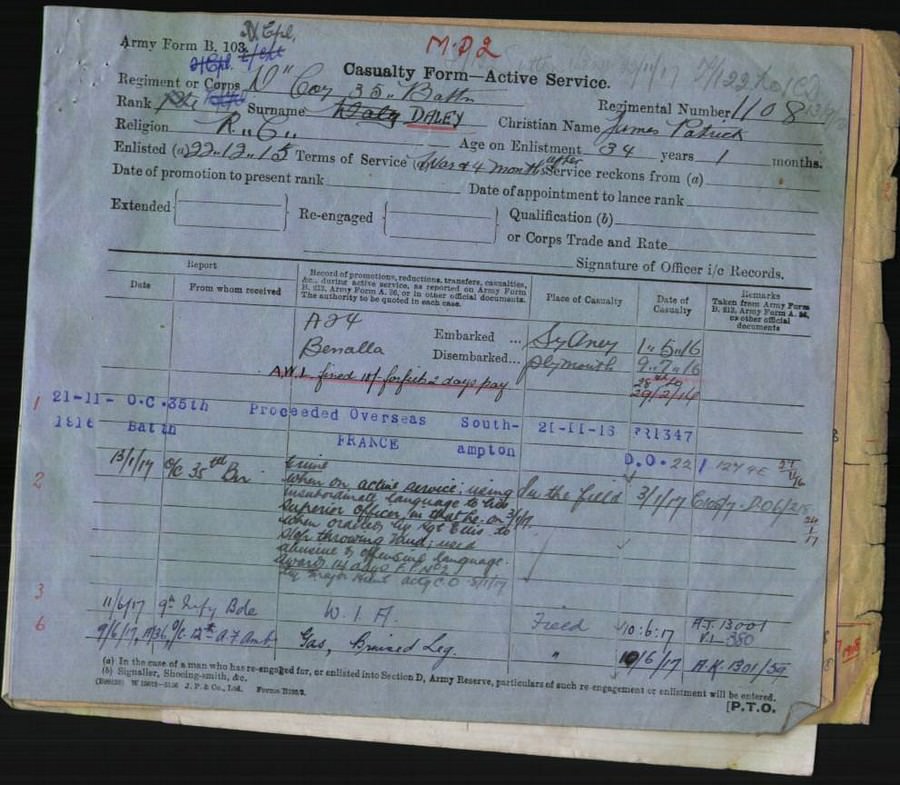 Army Form B. 103.
M.D.2
Casualty Form—Active Service.
Regiment or Corps "D" Coy 35" Battn
Regimental Number 1108
Rank Pte Surname Daly DALEY Christian Name James Patrick
Religion R."C" Age on Enlistment 34 years 1 months.
Enlisted (a) 22.12.15 Terms of Service War & 4 months after Service reckons from (a)
Date of promotion to present rank Date of appointment to lance rank
Extended Re-engaged Qualification (b)
or Corps Trade and Rate
Signature of Officer i/c Records.
Report
Date From whom received
Record of promotions, reductions, transfers, casualties,
&c., during active service, as reported on Army Form
B. 213, Army Form A. 36, or in other official documents.
The authority to be quoted in each case.
Place of Casualty
Date of
Casualty
Remarks
Taken from Army Form
B. 213, Army Form A. 36,
or other official
documents
A24 Embarked ... Sydney 1"5"16
Benalla Disembarked... Plymouth 9"7"16
A.W.L. fined forfeit 2 days pay
1 21-11- O.C.35th Proceeded Overseas South- 21-11-16 FR1347
1916 Battn FRANCE ampton D.O.22
2 13/1/17 O/C 35th Bn Crime
When on active service; using In the field 3/1/17
insubordinate language to his
superior officer in that he on 3/1/17
when ordered by Sgt Ellis to
stop throwing used
abusive & offensive language.
Award 14 days F.P. No 2
by Major actg C.O. 5/1/17
3
11/6/17 9th Infy Bde W.I.A. Field 10.6.17 A.J. 13001
6 9/6/17 O/C 12th A.F. Amb. Gas, Bruised Leg. " 10/6/17 A.K. 1301/39
(a) In the case of a man who has re-engaged for, or enlisted into Section D, Army Reserve, particulars of such re-engagement or enlistment will be entered.
(b) Signaller, Shoeing-smith, &c.
J. P. & Co., Ltd.
[P.T.O.